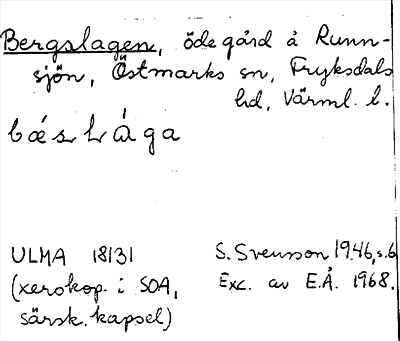 Bergslagen, ödegård å Runn-
sjön, Östmarks sn, Fryksdals
hd, Värml. l.
ULMA 18131 S. Svensson 1946, s. 6
(xerokop. i SOA, Exc. av E.Å. 1968.
särsk. kapsel)